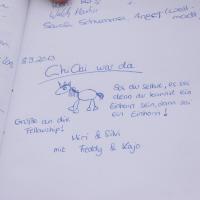 Martin
8.9.2013
ChiChi was da
Sei du selbst, es sei
denn du kannst ein
Einhorn sein, dann sei
ein Einhorn!
Grüße an die
Fellowship!
Mimi & Silvi
mit Freddy & Kajo